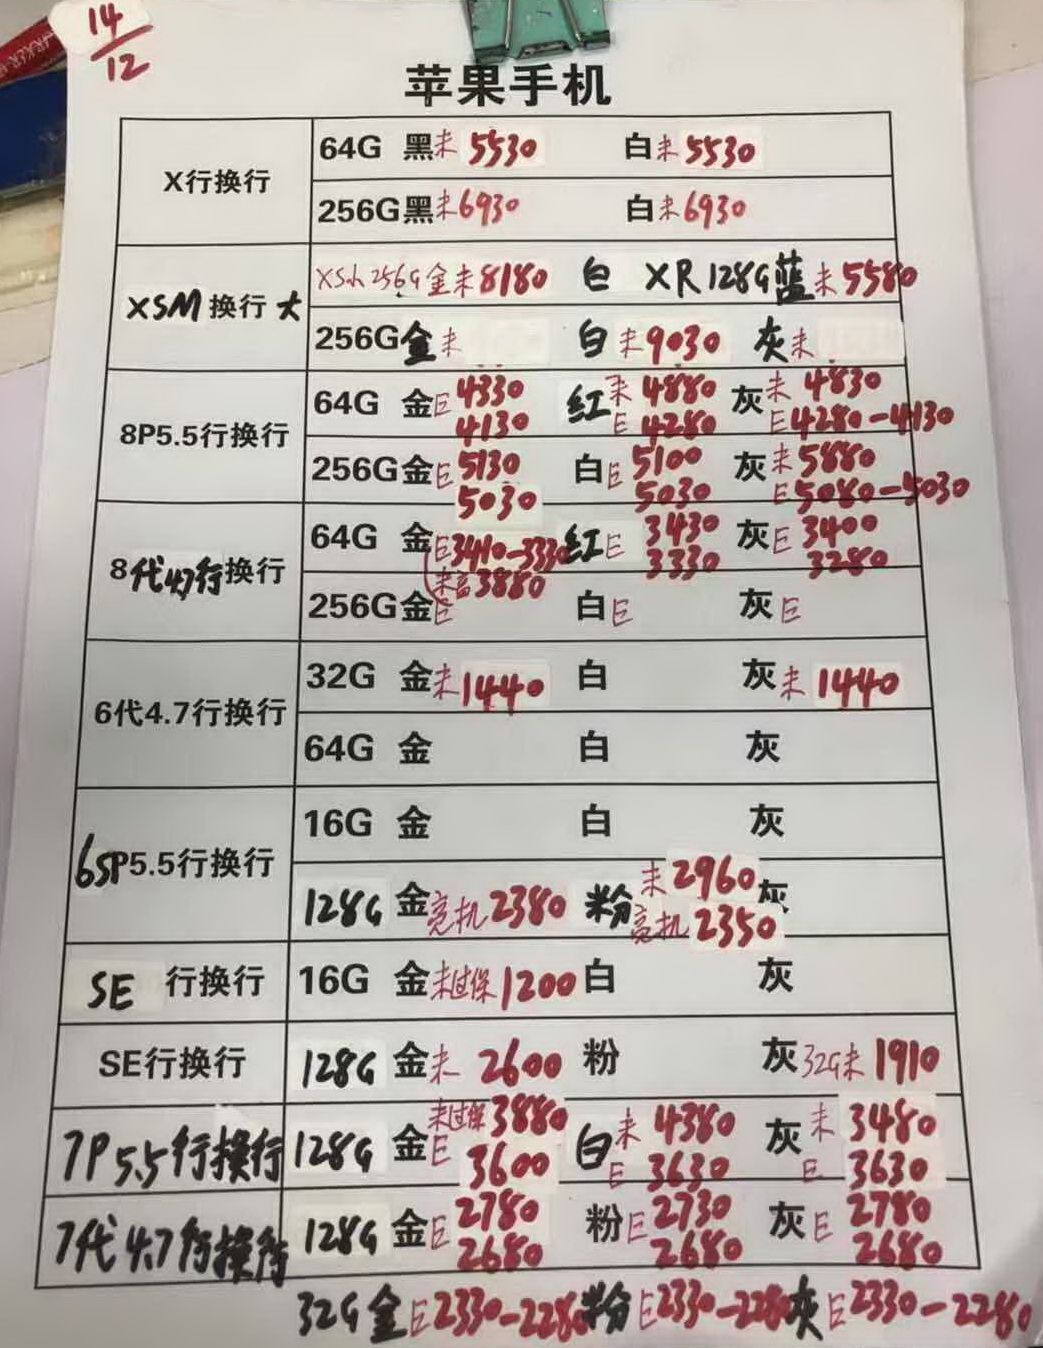 14/12
苹果手机
X行换行
64G 黑未5530 白未5530
256G黑未6930 白未6930
XSM换行大
XSm 256G金未8180 白 XR128G蓝未5580
256G金未 白未9030 灰未
8P5.5行换行
64G 金E4330 红未4880 灰未4830
4130 E4280 E4280-4130
256G金E5130 白E5100 灰未5880
5030 5030 E5080-5030
8代4.7行换行
64G 金E3410-3330红E3430 灰E3400
3330 3280
未高3880
256G金E 白E 灰E
6代4.7行换行
32G 金未1440 白 灰未1440
64G 金 白 灰
6SP5.5行换行
16G 金 白 灰
未2960
128G 金亮机2380 粉 灰
亮机2350
SE 行换行
16G 金未过保1200白 灰
SE行换行
128G 金未2600 粉 灰32G未1910
7P5.5行换行
未过保3880 未4380 未3480
128G 金E3600 白E3630 灰E3630
7代4.7行换行
128G 金E2780 粉E2730 灰E2780
2680 2680 2680
32G金E2330-2280粉E2330-2280灰E2330-2280